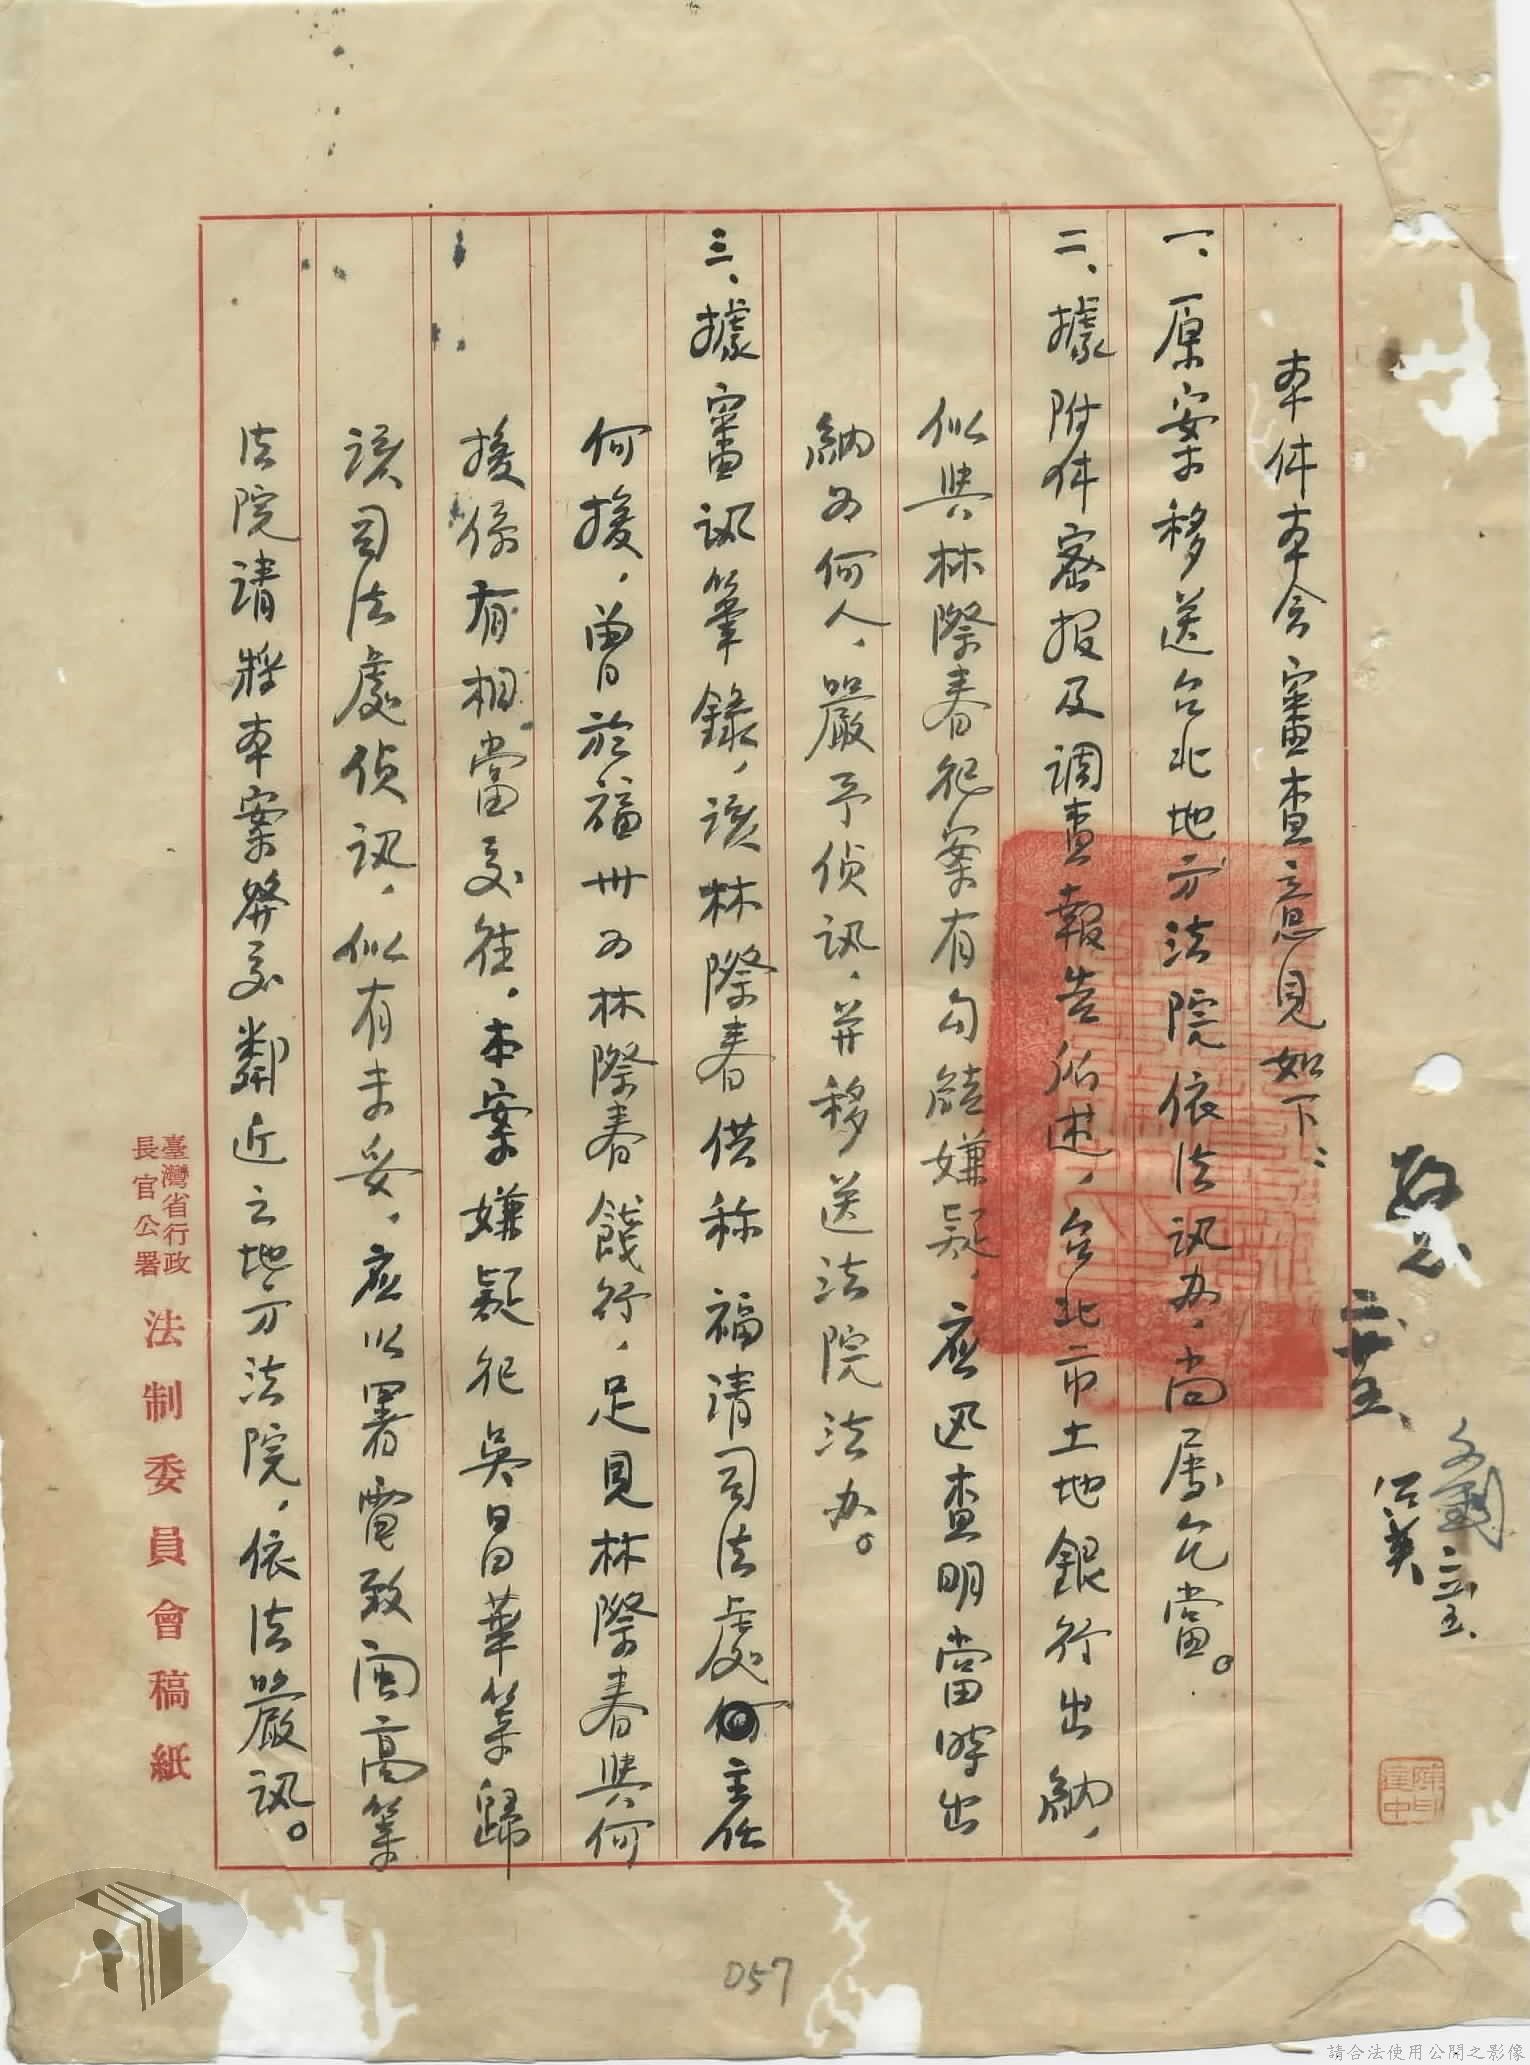 本件本会審查意見如下：
一、原案移送台北地方法院依法訊办，尚屬允當。
二、據附件密报及调查報告所述，台北市土地銀行出納，
似與林際春犯案有勾結嫌疑，應迅查明當時出
納为何人，嚴予偵訊，并移送法院法办。
三、據審訊筆錄，该林際春供称福清司法處主任
何授，曾於福州为林際春餞行，足見林際春與何
授係有相當交往，本案嫌疑犯吳昌華等歸
该司法處偵訊，似有未妥，应以署電致闽高等
法院請将本案發交鄰近之地方法院，依法嚴訊。
臺灣省行政
長官公署
法制委員會稿紙
057
請合法使用公開之影像